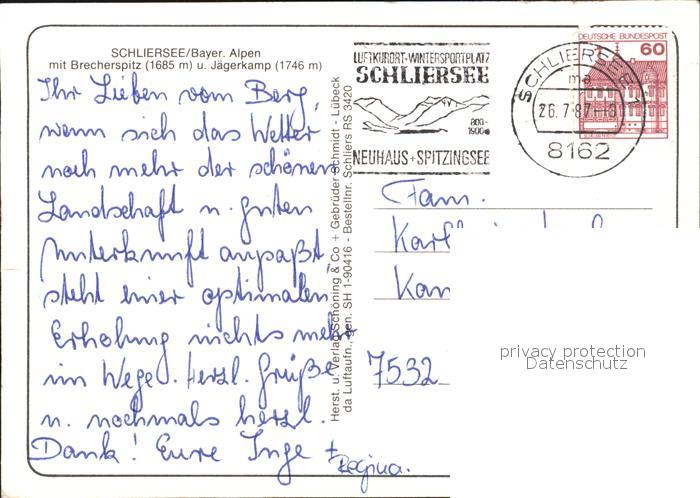 SCHLIERSEE/Bayer. Alpen
mit Brecherspitz (1685 m) u. Jägerkamp (1746 m)
Ihr Lieben vom Berg,
wenn sich das Wetter
noch mehr der schönen
Landschaft u. guten
Unterkunft anpaßt,
steht einer optimalen
Erholung nichts mehr
im Wege. Herzl. Grüße
u. nochmals herzl.
Dank! Eure Inge +
Regina.
Herst. u. Verlag Schöning & Co + Gebrüder Schmidt - Lübeck
da Luftaufn., gen. SH 1-90416 - Bestellnr. Schliers RS 3420
LUFTKURORT-WINTERSPORTPLATZ
SCHLIERSEE
800-
1900m
NEUHAUS+SPITZINGSEE
SCHLIERSEE 1
ma
26.7.87-18
8162
DEUTSCHE BUNDESPOST
60
Fam.
7532
privacy protection
Datenschutz